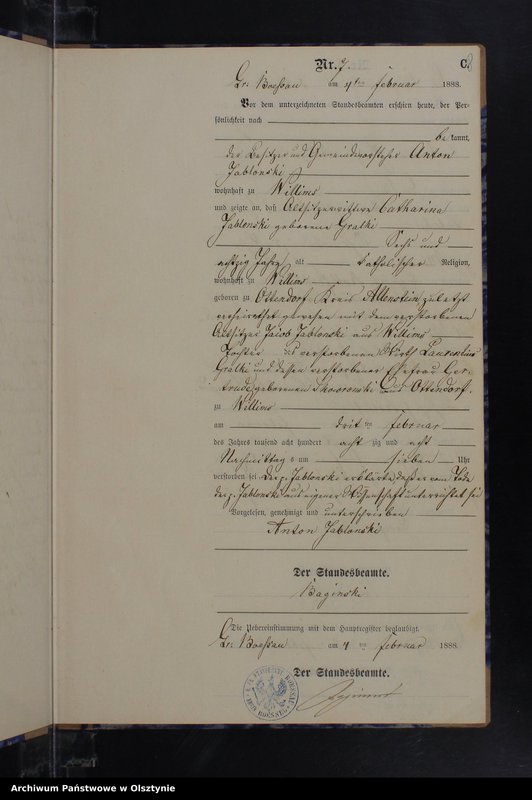 Nr. 7. C.
Gr. Boessau am 4 ten Februar 1888.
Vor dem unterzeichneten Standesbeamten erschien heute, der Per-
sönlichkeit nach
be kannt,
der Besitzer und Gemeindevorsteher Anton
Jablonski
wohnhaft zu Willims
und zeigte an, daß Altsitzerwittwe Catharina
Jablonski geborene Gralki
Sechs und
achtzig Jahre alt katholischer Religion,
wohnhaft zu Willims
geboren zu Ottendorf Kreis Allenstein zuletzt
verheirathet gewesen mit dem verstorbenen
Altsitzer Jacob Jablonski aus Willims
Tochter des verstorbenen Wirth Laurentius
Gralki und dessen verstorbener Ehefrau Ger-
trude geborenen Skowronski aus Ottendorf.
zu Willims
am drit ten Februar
des Jahres tausend acht hundert acht zig und acht
Nachmittag s um sieben Uhr
verstorben sei. Der p. Jablonski erklärte, daß er vom Tode
der p. Jablonski aus eigener Wissenschaft unterrichtet sei
Vorgelesen, genehmigt und unterschrieben
Anton Jablonski
Der Standesbeamte.
Baginski
Die Uebereinstimmung mit dem Hauptregister beglaubigt.
Gr. Boessau am 4 ten Februar 1888.
Der Standesbeamte.
Archiwum Państwowe w Olsztynie